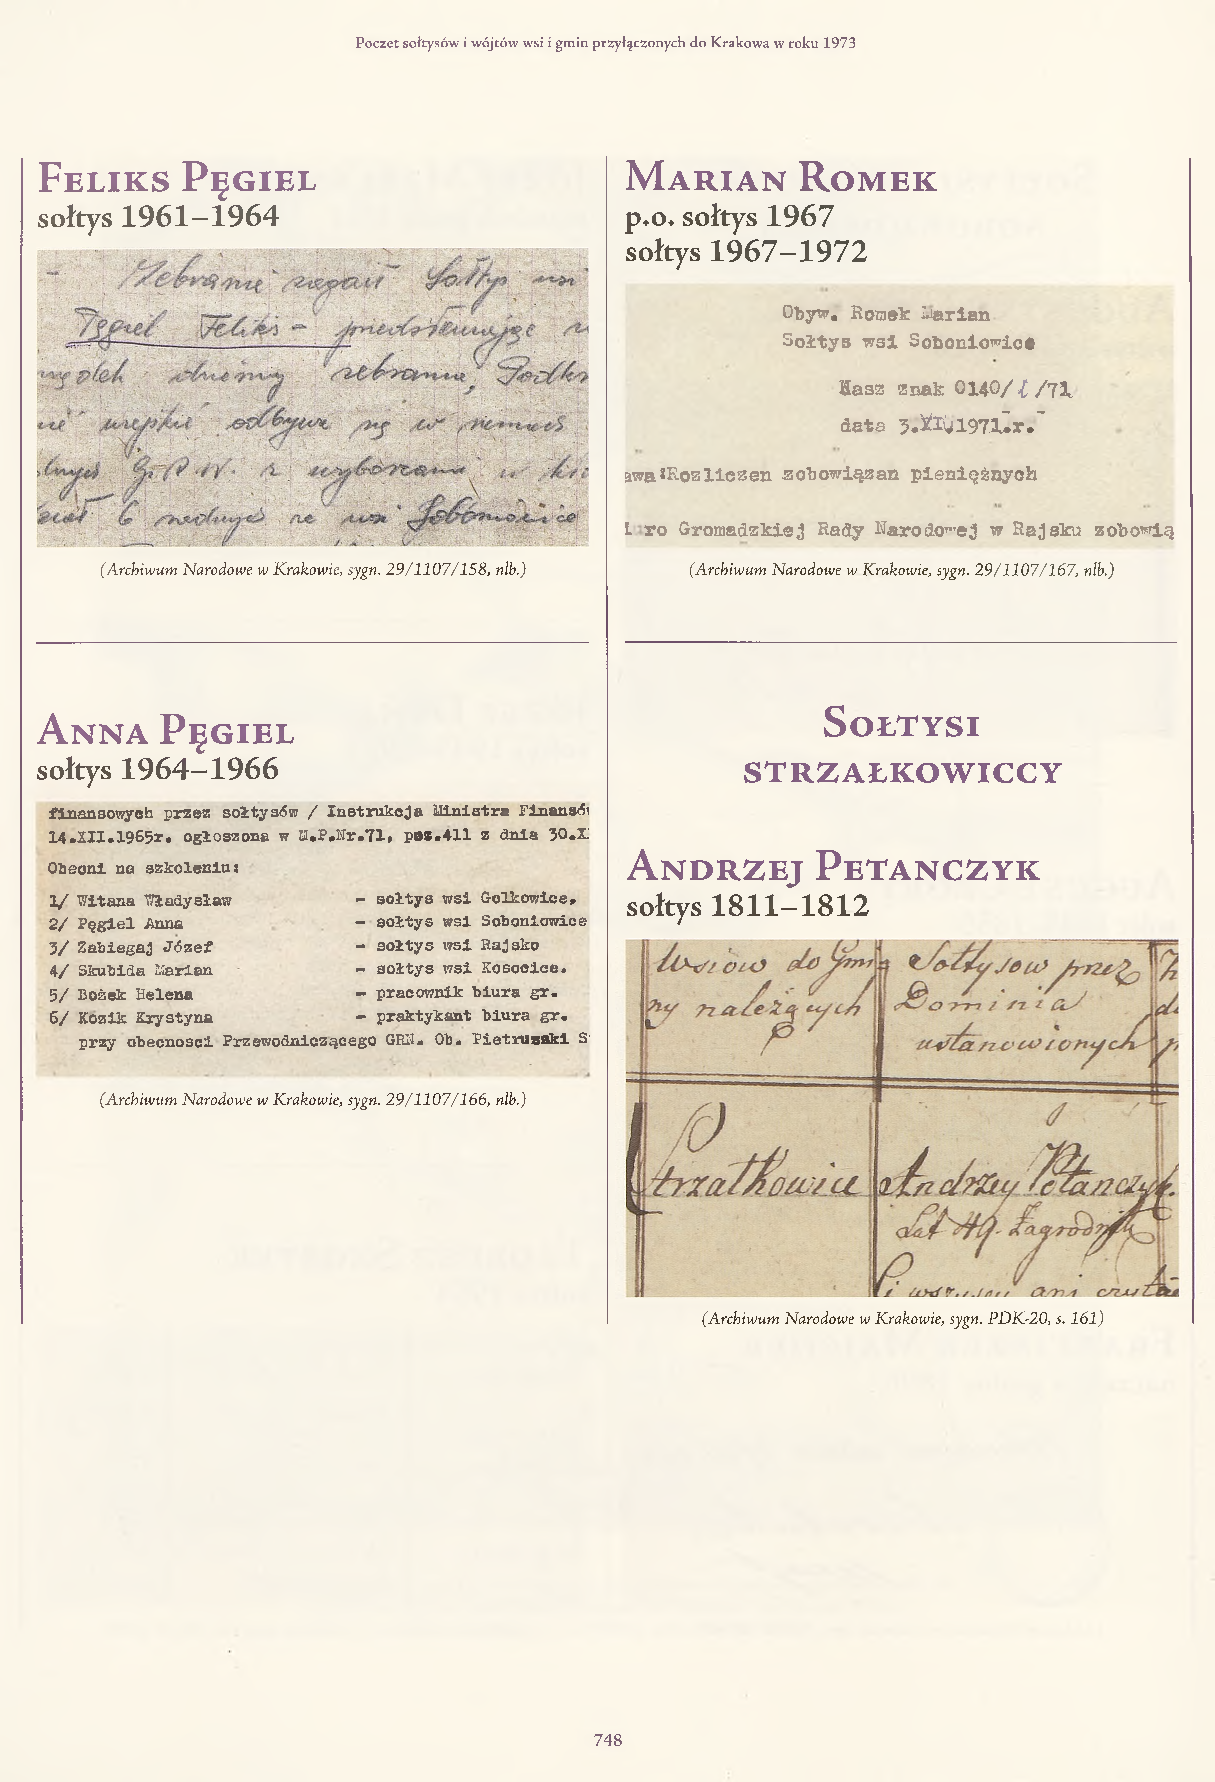 Poczet sołtysów i wójtów wsi i gmin przyłączonych do Krakowa w roku 1973
Feliks Pęgiel
sołtys 1961–1964
- Zebranie zagaił Sołtys wsi
Pęgiel Feliks - przedstawiając
dzienny zebrania,
odbywa się w
G.R.N. z wyborcami w
6 na wsi Soboniowice
(Archiwum Narodowe w Krakowie, sygn. 29/1107/158, nlb.)
Anna Pęgiel
sołtys 1964–1966
finansowych przez sołtysów / Instrukcja Ministra Finansó
14.XII.1965r. ogłoszona w M.P.Nr.71, poz.411 z dnia 30.X
Obecni na szkoleniu:
1/ Witana Władysław - sołtys wsi Golkowice,
2/ Pęgiel Anna - sołtys wsi Soboniowice
3/ Zabiegaj Józef - sołtys wsi Rajsko
4/ Skubida Marian - sołtys wsi Kosocice.
5/ Bożek Helena - pracownik biura gr.
6/ Kozik Krystyna - praktykant biura gr.
przy obecnosci Przewodniczącego GRN. Ob. Pietruszki S
(Archiwum Narodowe w Krakowie, sygn. 29/1107/166, nlb.)
Marian Romek
p.o. sołtys 1967
sołtys 1967–1972
Obyw. Romek Marian
Sołtys wsi Soboniowice
Nasz znak 0140/ /71
data 3.XI.1971.r.
awa:Rozliczen zobowiązan pieniężnych
iuro Gromadzkiej Rady Narodowej w Rajsku zobowią
(Archiwum Narodowe w Krakowie, sygn. 29/1107/167, nlb.)
Sołtysi
strzałkowiccy
Andrzej Petanczyk
sołtys 1811–1812
Wsiów do Gmi
ny należących
Sołtysow przez
Dominia
ustanowionych
Strzałkowice
Andrzey Petanczyk.
Lat 49. Zagrodnik
(Archiwum Narodowe w Krakowie, sygn. PDK-20, s. 161)
748